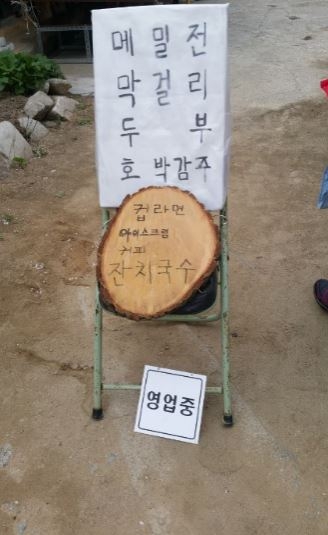 메밀전
막걸리
두부
호박감주
컵라면
아이스크림
커피
잔치국수
영업중